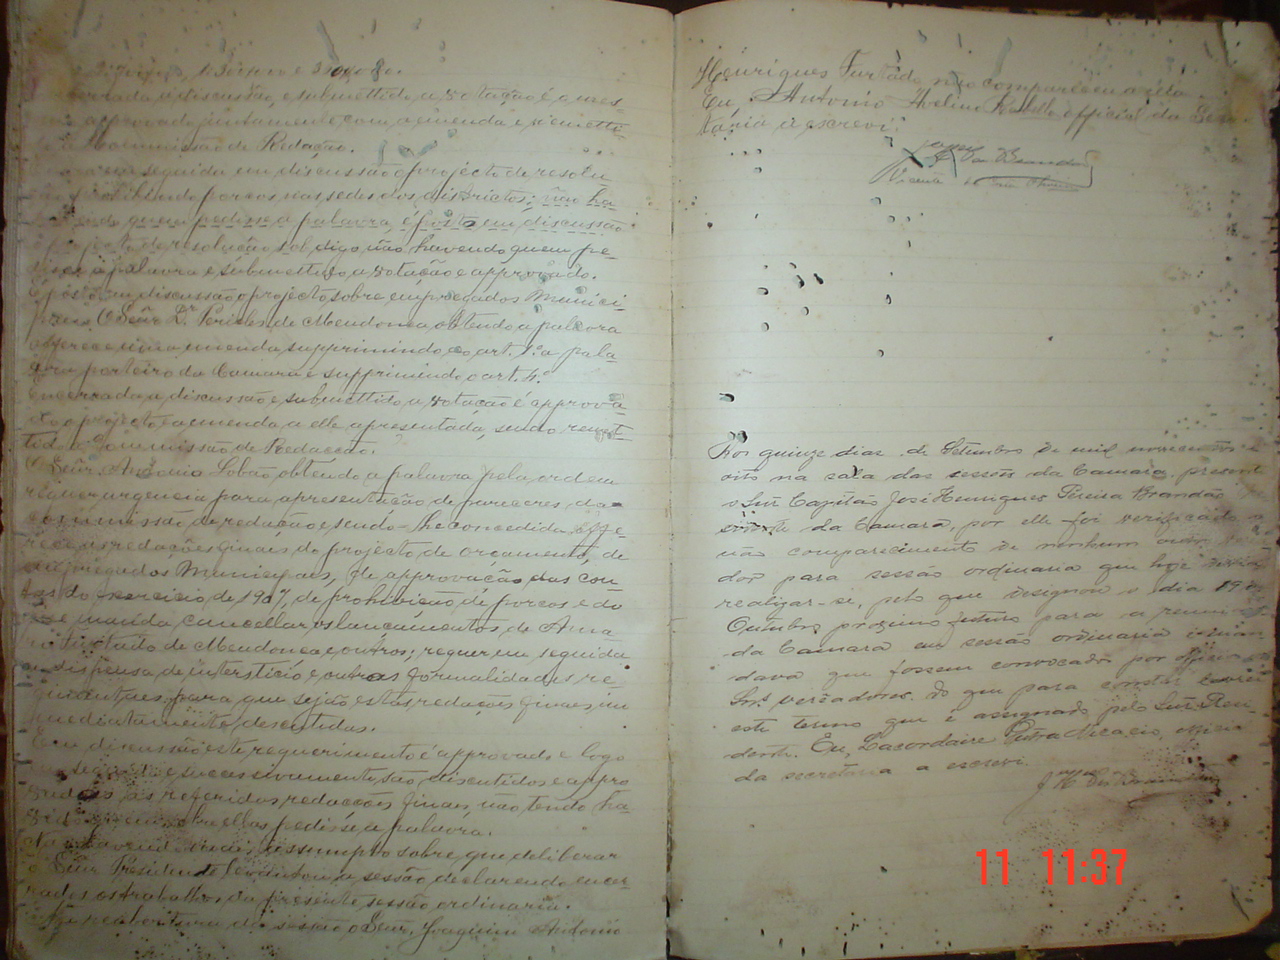 discussão, e submettido a votação é a mes
approvado juntamente com a emenda e remetti
Commissão de Redação.
em seguida em discussão o projecto de resolu
prohibindo porcos nas sedes dos districtos; não ha
quem pedisse a palavra, é posto em discussão
projecto de resolução sol, digo, não havendo quem pe-
a palavra e submettido a votação e approvado.
É posto em discussão o projecto sobre empregados Munici-
paes. O Señr Dr. Pericles de Mendonca obtendo a palavra
offerece uma emenda supprimindo ao art. 1º a pala-
vra porteiro da Camara e supprimindo o art. 4º
Encerrada a discussão e submettido a votação é approva-
do o projecto e a emenda a elle apresentada, sendo remet-
tido a Commissão de Redacção.
O Señr. Antonio Lobão obtendo a palavra pela ordem
requer urgencia para apresentação de pareceres da
commissão de redação e sendo-lhe concedida offe-
rece as redações finaes do projecto de orçamento, de
empregados Municipaes, de approvação das con-
tas do exercicio de 1907, de prohibição de porcos e do
que manda cancellar os lançamentos de Anna
de Mendonca e outros; requer em seguida
a dispensa de intersticio e outras formalidades re-
para que sejão estas redações finaes im-
mediatamente descutidas.
Em discussão este requerimento é approvado e logo
em seguida e sucessivamente são discutidos e appro
vadas as referidas redacções finaes, não tendo ha-
vido quem sobre ellas pedisse a palavra.
Não havendo mais assumpto sobre que deliberar
o Señr. Presidente levantou a sessão declarando encer-
rados os trabalhos da presente sessão ordinaria.
reabertura da sessão o Señr. Joaquim Antonio
Henriques Furtado, não compareceu a ella.
Eu, Antonio Avelino Rabello, official da Secre-
taria a escrevi.
Vicente
Aos quinze dias de Setembro de mil novecentos e
oito na sala das sessões da Camara presente
o Señr Capitão José Henriques Pereira Brandão
da Camara, por elle foi verificado o
não comparecimento de nenhum outro verea-
dor para sessão ordinaria que hoje devia
realizar-se, pelo que designou o dia 19 de
Outubro proximo futuro para a reunião
da Camara em sessão ordinaria
dava que fossem convocados por officio os
Snrs vereadores. Do que para constar lavrei
este termo que é assignado pelo Señr Presi-
dente. Eu, Lacordaire Dutra Nicacio, official
da secretaria a escrevi
J H Per Brandão
11 11:37